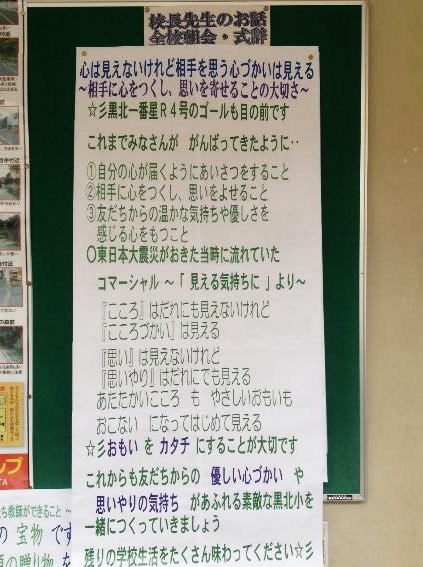 校長先生のお話
全校朝会・式辞
心は見えないけれど相手を思う心づかいは見える
～相手に心をつくし、思いを寄せることの大切さ～
☆彡黒北一番星Ｒ４号のゴールも目の前です
これまでみなさんが がんばってきたように‥
①自分の心が届くようにあいさつをすること
②相手に心をつくし、思いをよせること
③友だちからの温かな気持ちや優しさを
感じる心をもつこと
〇東日本大震災がおきた当時に流れていた
コマーシャル ～「 見える気持ちに 」より～
『こころ』はだれにも見えないけれど
『こころづかい』は見える
『思い』は見えないけれど
『思いやり』はだれにでも見える
あたたかいこころ も やさしいおもいも
おこない になってはじめて見える
☆彡おもい を カタチ にすることが大切です
これからも友だちからの 優しい心づかい や
思いやりの気持ち があふれる素敵な黒北小を
一緒につくっていきましょう
残りの学校生活をたくさん味わってください☆彡
ち教師ができること～
の 宝物 です
の贈り物 を